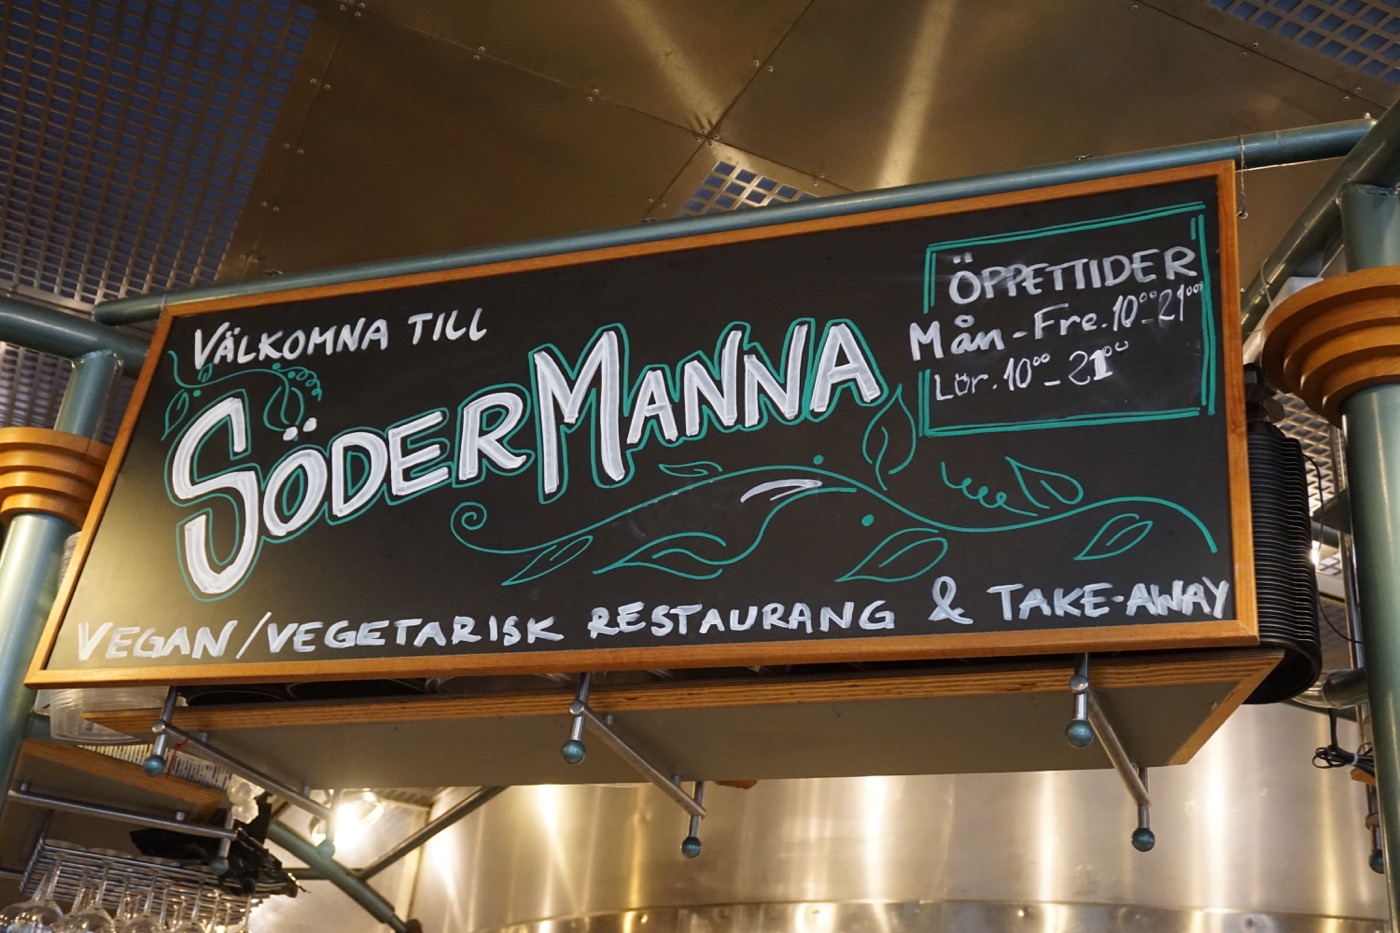 VÄLKOMNA TILL
SÖDERMANNA
ÖPPETTIDER
Mån-Fre. 10⁰⁰-21⁰⁰
Lör. 10⁰⁰-21⁰⁰
VEGAN/VEGETARISK RESTAURANG & TAKE-AWAY